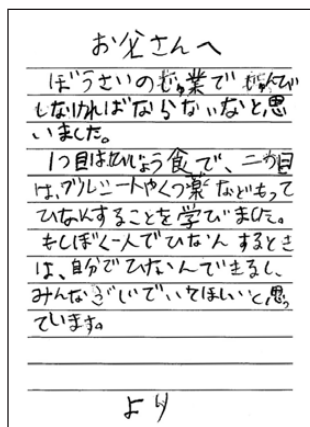 お父さんへ
ぼうさいの授業でじゅんび
しなければならないなと思
いました。
1つ目はひじょう食で、二つ目
は、ブルーシートやくつ薬などもって
ひなんすることを学びました。
もしぼく一人でひなんするとき
は、自分でひなんできるし、
みんなぶじでいてほしいと思っ
ています。
より